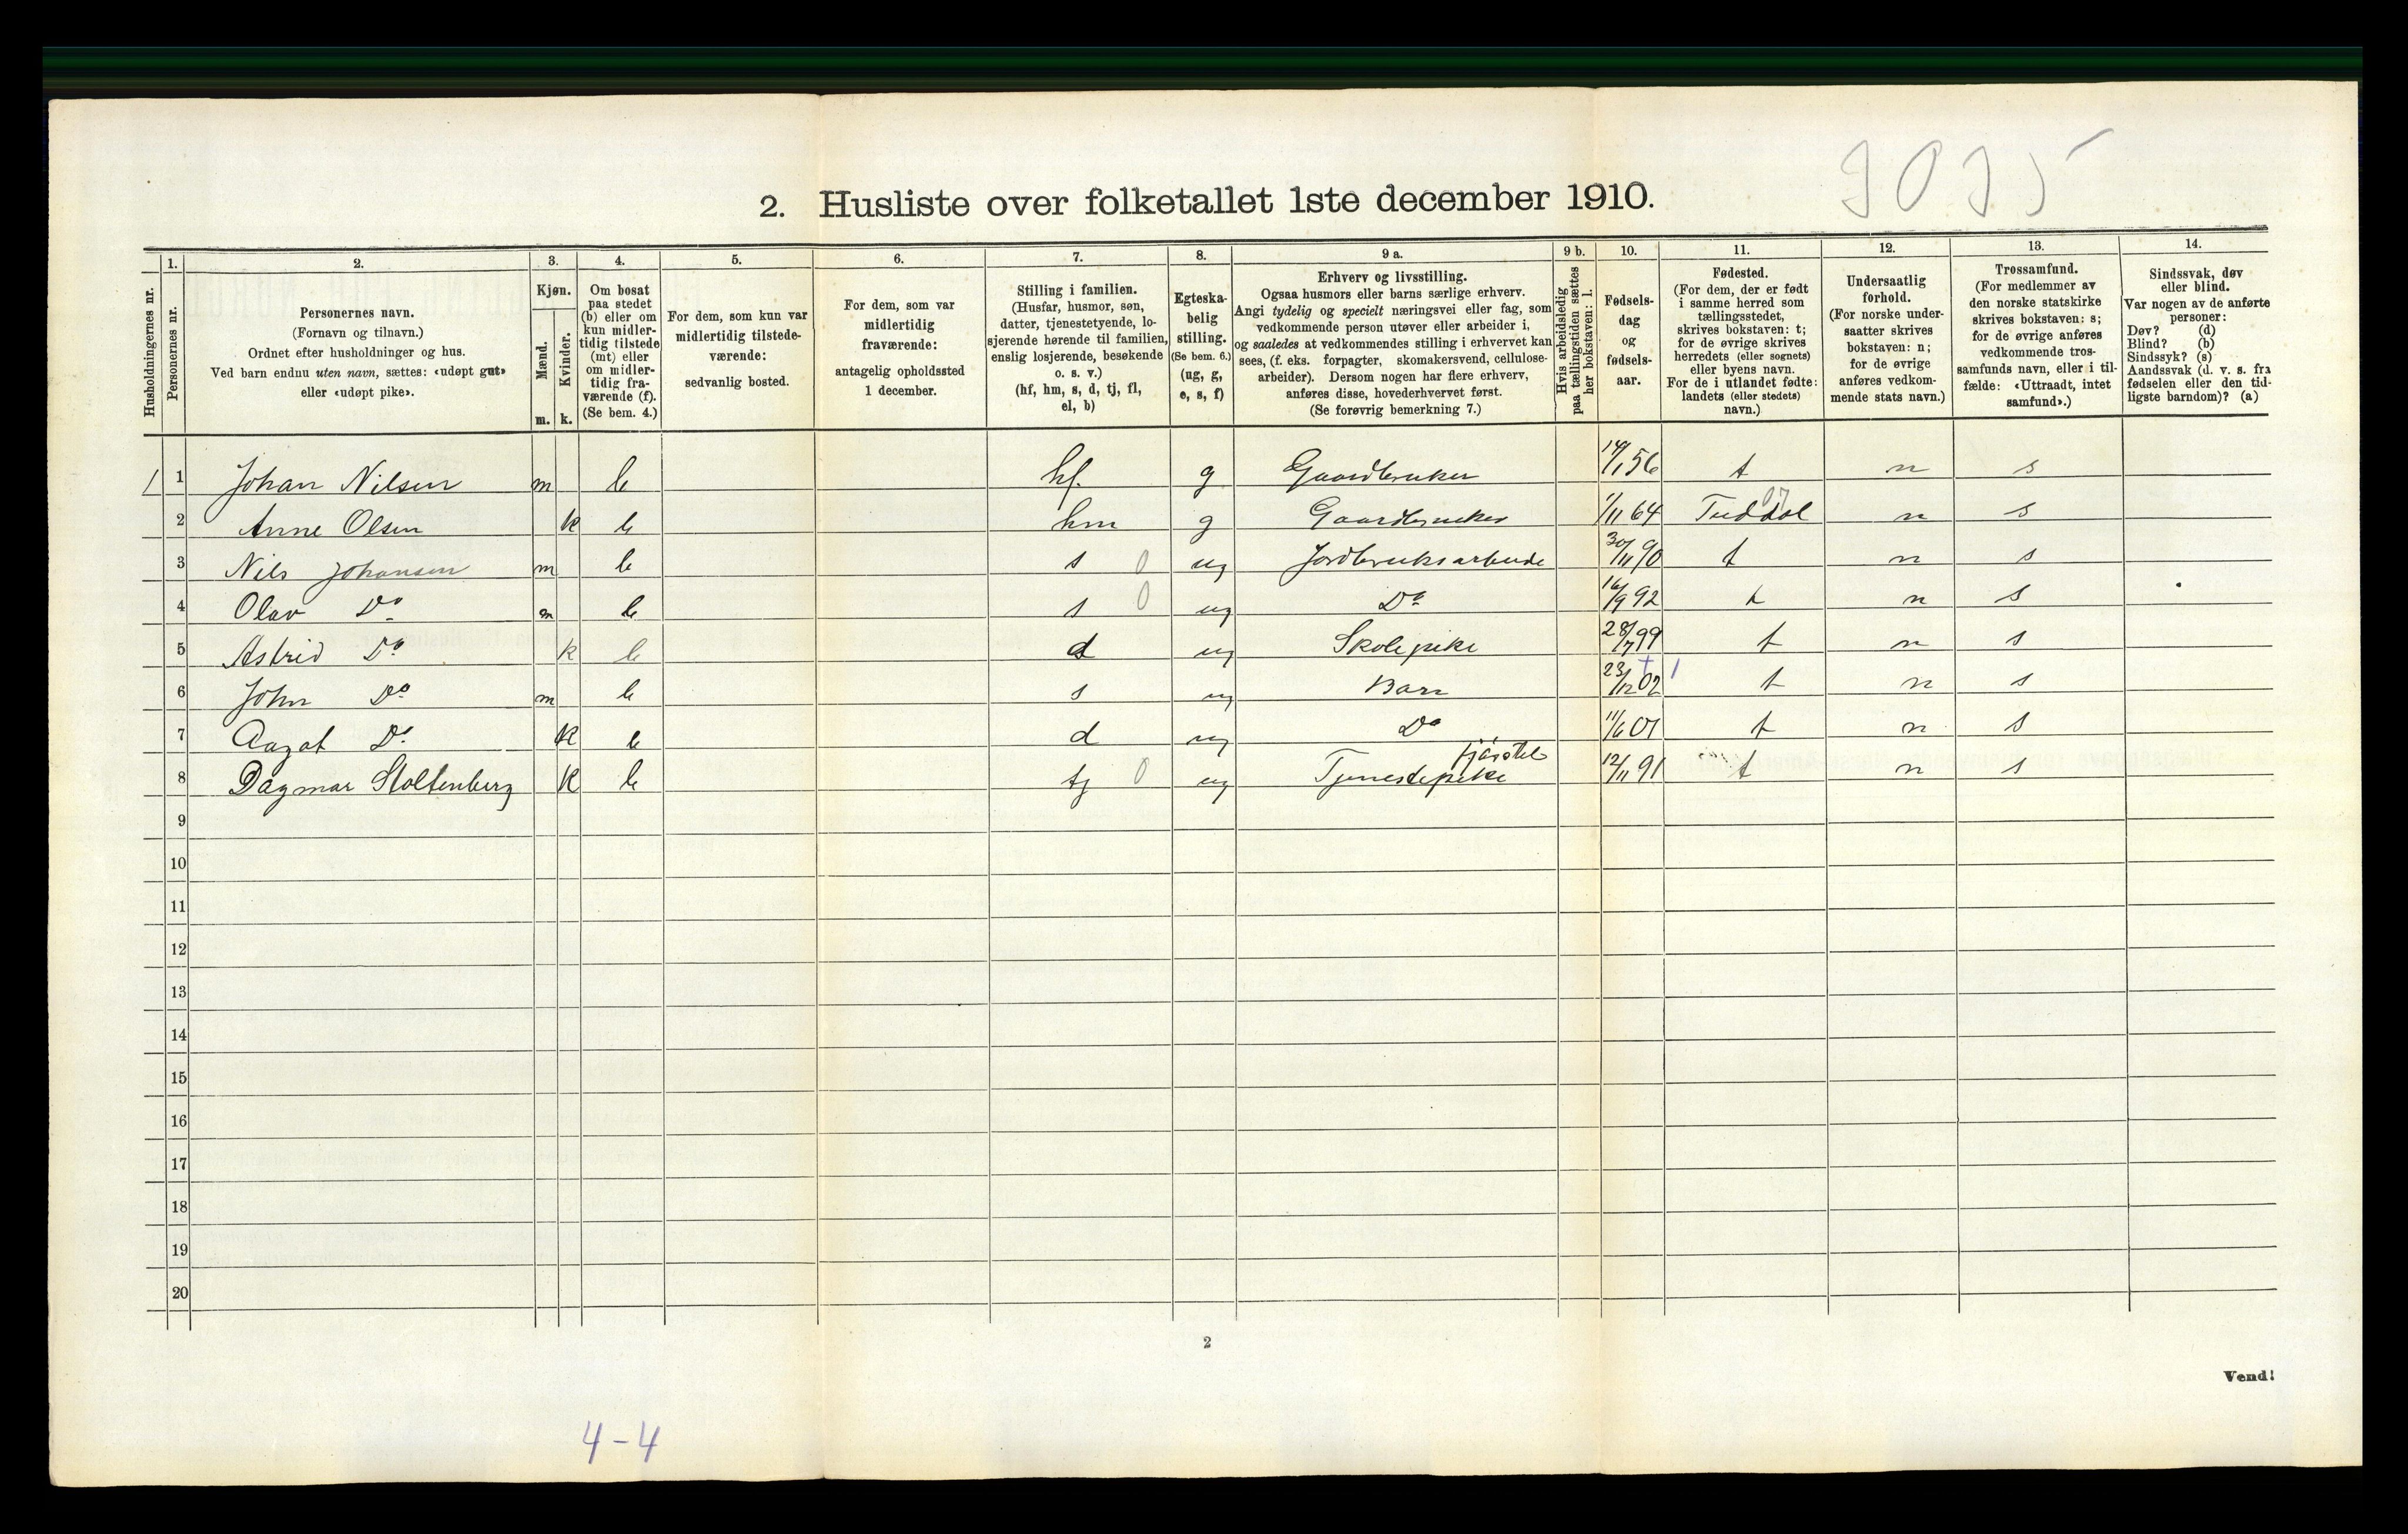 2. Husliste over folketallet 1ste december 1910.
Husholdningernes nr.
1. Personernes nr.
2. Personernes navn. (Fornavn og tilnavn.) Ordnet efter husholdninger og hus. Ved barn endnu uten navn, sættes: «udøpt gut» eller «udøpt pike».
3. Kjøn. Mænd. m. Kvinder. k.
4. Om bosat paa stedet (b) eller om kun midler- tidig tilstede (mt) eller om midler- tidig fra- værende (f). (Se bem. 4.)
5. For dem, som kun var midlertidig tilstede- værende: sedvanlig bosted.
6. For dem, som var midlertidig fraværende: antagelig opholdssted 1 december.
7. Stilling i familien. (Husfar, husmor, søn, datter, tjenestetyende, lo- sjerende hørende til familien, enslig losjerende, besøkende o. s. v.) (hf, hm, s, d, tj, fl, el, b)
8. Egteska- belig stilling. (Se bem. 6.) (ug, g, e, s, f)
9 a. Erhverv og livsstilling. Ogsaa husmors eller barns særlige erhverv. Angi tydelig og specielt næringsvei eller fag, som vedkommende person utøver eller arbeider i, og saaledes at vedkommendes stilling i erhvervet kan sees, (f. eks. forpagter, skomakersvend, cellulose- arbeider). Dersom nogen har flere erhverv, anføres disse, hovederhvervet først. (Se forøvrig bemerkning 7.)
9 b. Hvis arbeidsledig paa tællingstiden sættes her bokstaven: l.
10. Fødsels- dag og fødsels- aar.
11. Fødested. (For dem, der er født i samme herred som tællingsstedet, skrives bokstaven: t; for de øvrige skrives herredets (eller sognets) eller byens navn. For de i utlandet fødte: landets (eller stedets) navn.)
12. Undersaatlig forhold. (For norske under- saatter skrives bokstaven: n; for de øvrige anføres vedkom- mende stats navn.)
13. Trossamfund. (For medlemmer av den norske statskirke skrives bokstaven: s; for de øvrige anføres vedkommende tros- samfunds navn, eller i til- fælde: «Uttraadt, intet samfund».)
14. Sindssvak, døv eller blind. Var nogen av de anførte personer: Døv? (d) Blind? (b) Sindssyk? (s) Aandssvak (d. v. s. fra fødselen eller den tid- ligste barndom)? (a)
1 1 Johan Nilsen m b hf. g Gaardbruker 14/1 56 t n s
2 Anne Olsen k b hm g Gaardbruker 1/11 64 Tuddal 07 n s
3 Nils Johansen m b s 0 ug Jordbruksarbeide 30/11 90 t n s
4 Olav Do m b s 0 ug Do 16/9 92 t n s
5 Astrid Do k b d ug Skolepike 28/7 99 t n s
6 John Do m b s ug Barn 23/12 02 t n s
7 Aagot Do k b d ug Do 11/6 07 t n s
8 Dagmar Stoltenberg k b tj 0 ug Tjenestepike 12/11 91 t n s
9
10
11
12
13
14
15
16
17
18
19
20
2
Vend!
4-4